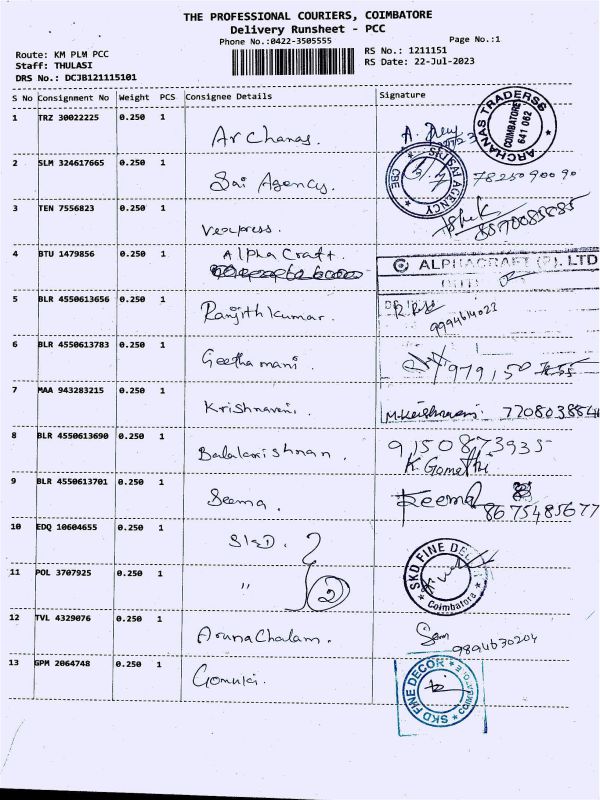 THE PROFESSIONAL COURIERS, COIMBATORE
Delivery Runsheet - PCC
Phone No.:0422-3505555
Page No.:1
Route: KM PLM PCC
Staff: THULASI
DRS No.: DCJB121115101
RS No.: 1211151
RS Date: 22-Jul-2023
S No Consignment No Weight PCS Consignee Details Signature
1 TRZ 30022225 0.250 1 Archanas.
ARCHANAS TRADERSS COIMBATORE 641 062
2 SLM 324617665 0.250 1 Sai Agency. 7825090090
SRI SAI AGENCY CBE
3 TEN 7556823 0.250 1 Vexpress.
4 BTU 1479856 0.250 1 Alpha Craft.
ALPHACRAFT (P). LTD
5 BLR 4550613656 0.250 1 Ranjith kumar. 9994614022
6 BLR 4550613783 0.250 1 Geetha mani.
7 MAA 943283215 0.250 1 Krishnaveni. M.Krishnaveni: 7708038846
8 BLR 4550613690 0.250 1 Balakrishnan. 9150873935
K. Gomathi
9 BLR 4550613701 0.250 1 Seema. Reema 8675485677
10 EDQ 10604655 0.250 1 SKD.
11 POL 3707925 0.250 1 " 2
SKD FINE DECOR Coimbatore
12 TVL 4329076 0.250 1 Arunachalam. Sam 9894630204
13 GPM 2064748 0.250 1 Gomuki.
SKD FINE DECOR COIMBATORE